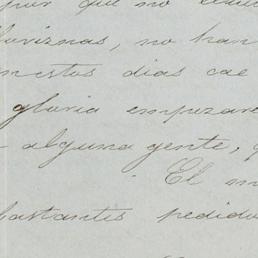 por que no
lloviznas, no han
en estos dias cae
gloria empezare
alguna gente, q
El m
bastantes pedido